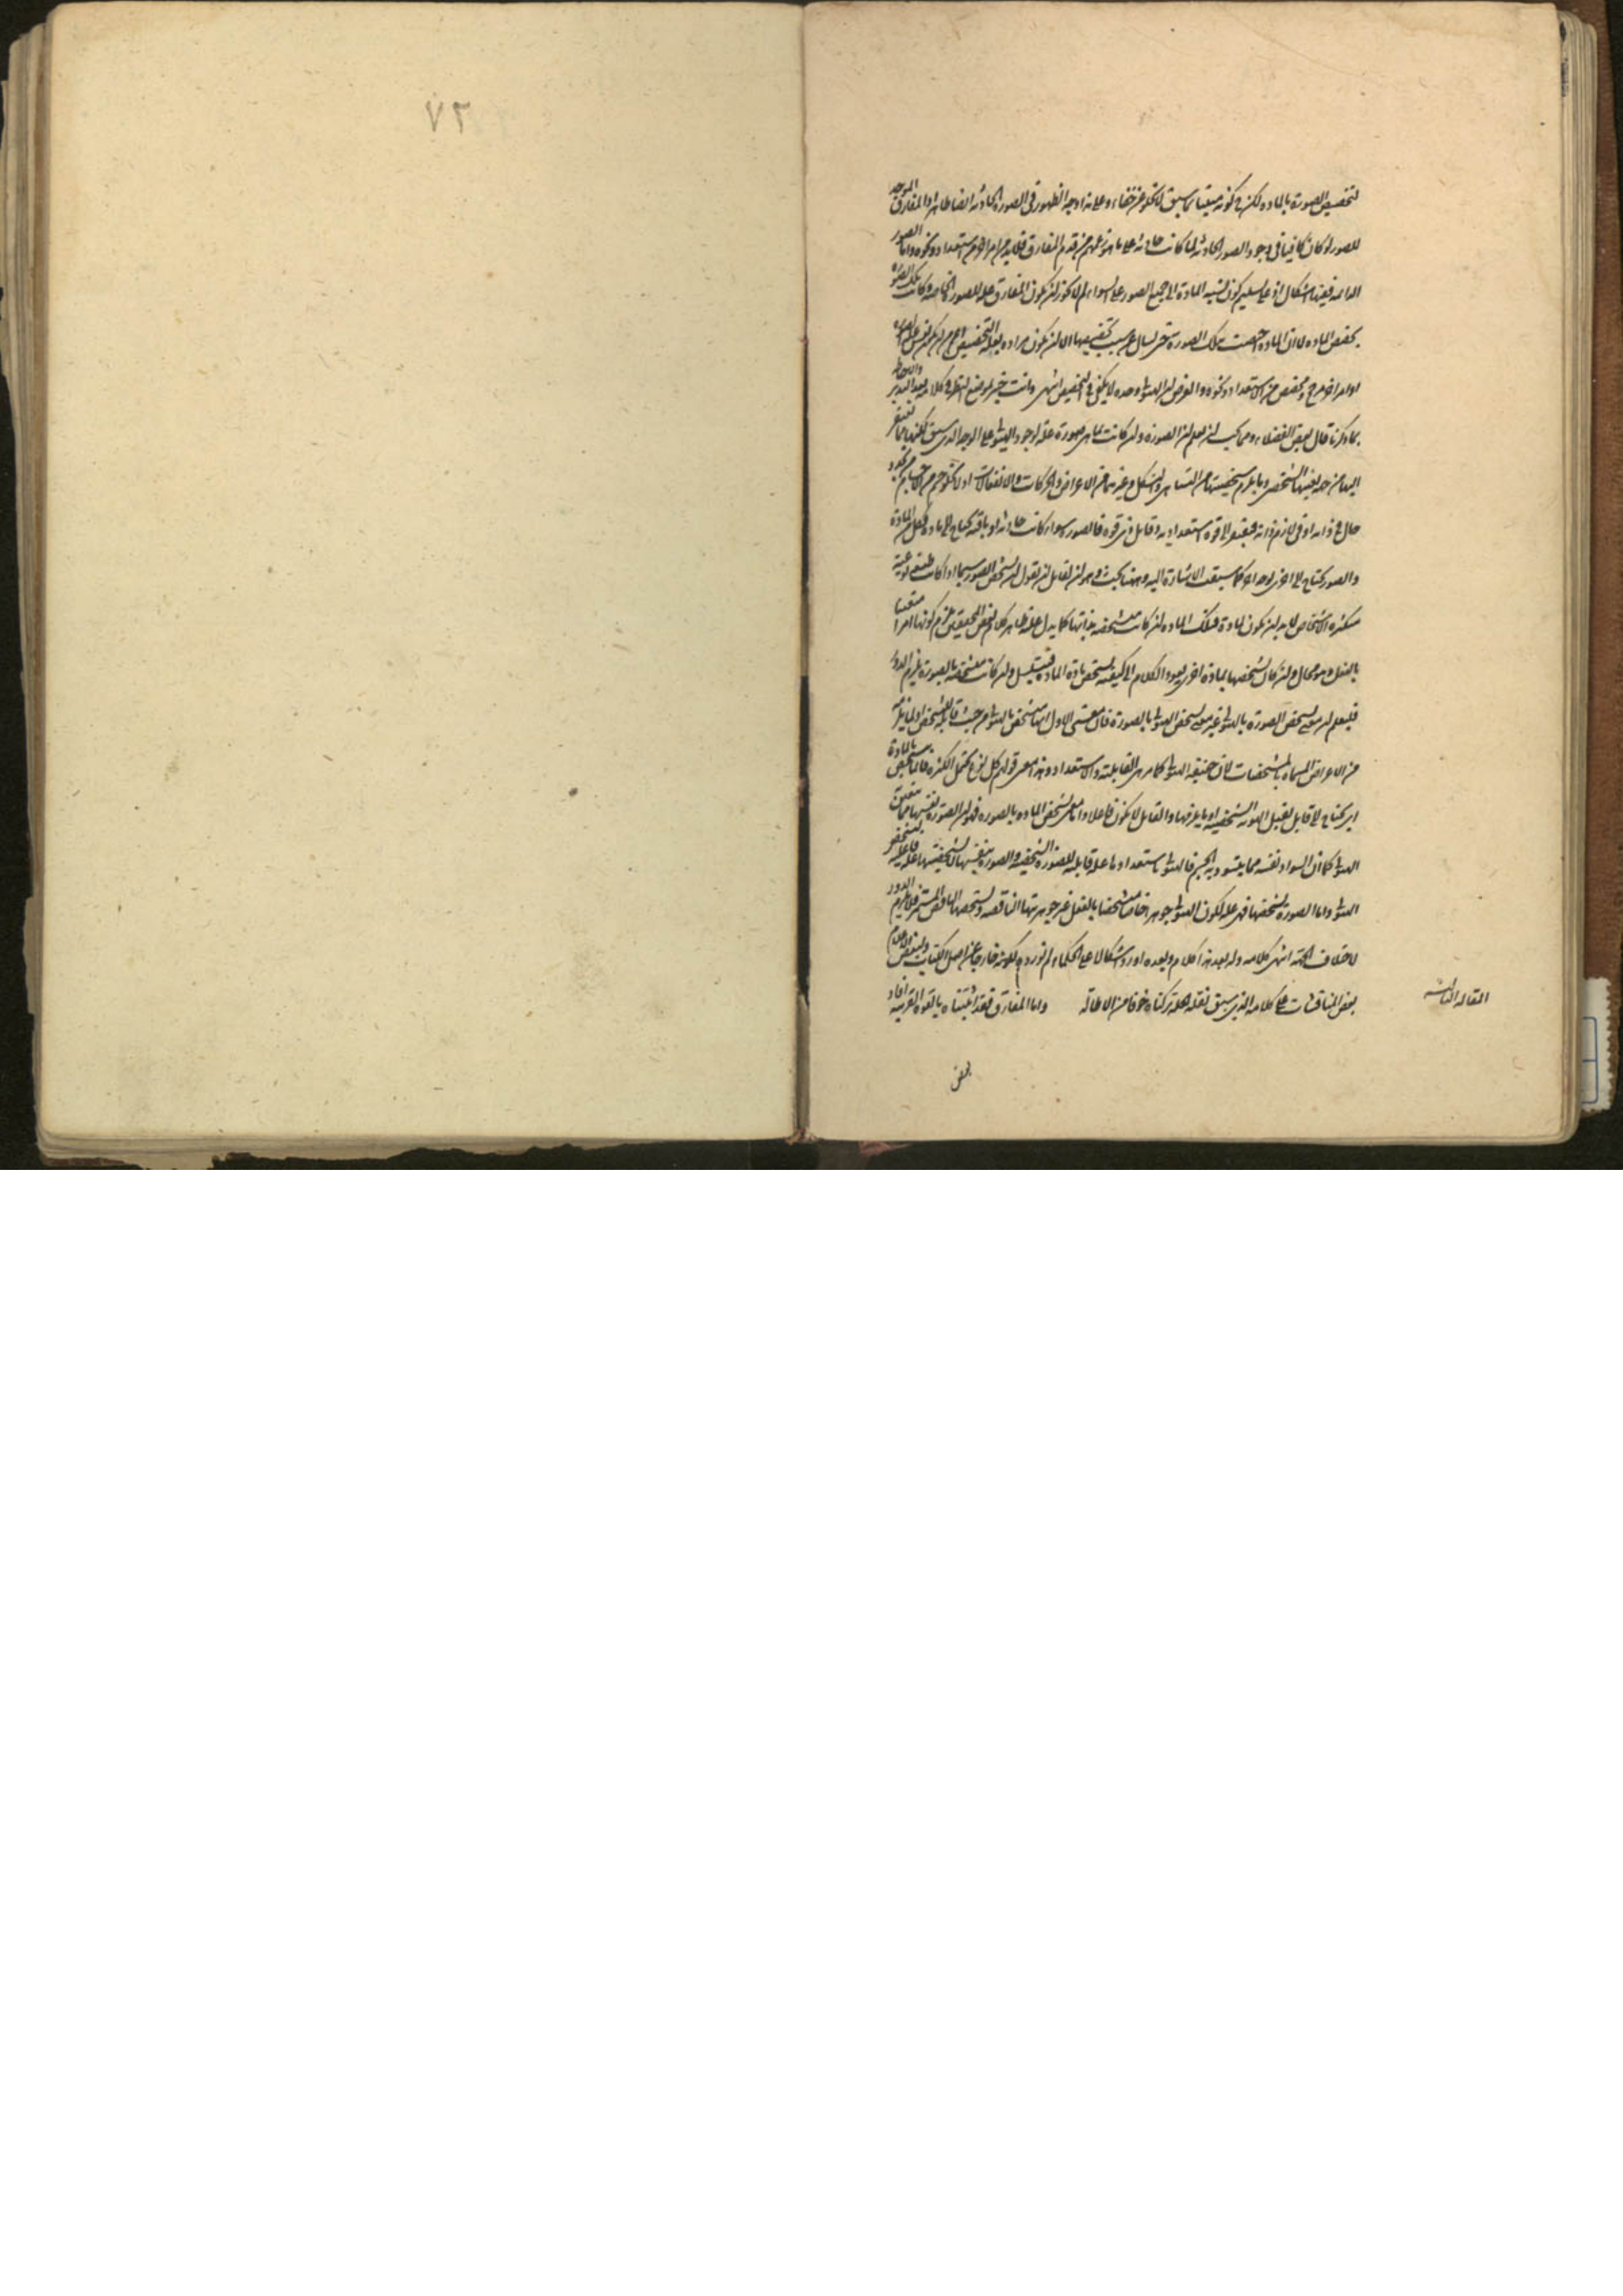 ٧٢
لتخصيص الصورة بالمادة لكن في كونه مبينا بما سبق لا يخلو عن خفاء وعلى هذا وجه الظهور في الصور الحادثة ايضا ظاهر اذ المفارق الموجد
للصور لو كان كافيا في وجود الصور الحادثة لما كانت حادثة على ما هو زعمهم من قدم المفارق فلا بد من امر اخر من استعداد ونحوه واما الصور
الدائمة ففيها اشكال اذ على تسليم كون نسبة المادة الى جميع الصور على السواء لم لا يجوز ان يكون المفارق علة للصور الخاصة وكانت تلك الصورة
تخصص المادة لا ان المادة خصصت تلك الصورة حتى يسأل عن سبب تخصيصها الا ان يكون مراده بعلة التخصيص اعم من ان يكون نفس الصورة
او امرا اخر مخصص من الاستعداد ونحوه والغرض ان الهيولى وحده لا يكفي في التخصيص انتهى وانت خبير بموضع النظر في كلامه بعد التدبر والاحاطة
بما ذكرنا قال بعض الفضلاء ومما يجب ان يعلم ان الصورة وان كانت بما هي صورة علة لوجود الهيولى على الوجه الذي سبق لكنها مما تفتقر
اليها من جهة تعينها الشخصي وما يلزم شخصيتها من التناهي والتشكل وغيرهما من الاعراض والحركات والانفعالات اذ لا يخلو جسم من الاجسام من تجدد
حال في ذاته او في لازم ذاته فيفتقر الى قوة استعدادية وقابل ذي قوة فالصور سواء كانت حادثة او باقية يحتاج الى مادة فكل من المادة
والصور يحتاج الى الاخرى بوجه اخر كما سبقت الاشارة اليه وههنا بحث وهو ان لقائل ان يقول ان تشخص الصور سيما اذا كانت طبيعة نوعية
متكثرة الاشخاص لا بد ان يكون لمادة فتلك المادة ان كانت متشخصة بذاتها كما يدل عليه ظاهر كلام بعض المحققين لزم كونها امرا متعينا
بالفعل وهو محال وان كان تشخصها بمادة اخرى يعود الكلام الى كيفية تشخص مادة المادة فيتسلسل وان كانت متشخصة بالصورة يلزم الدور
فليعلم ان معنى تشخص الصورة بالهيولى غير معنى تشخص الهيولى بالصورة فان معنى الاول انها متشخص بالهيولى من حيث قابلة للتشخص او لما يلزمه
من الاعراض المسماة بالمشخصات لان حقيقة الهيولى كما مر هي القابلية والاستعداد وهذا معنى قولهم كل نوع يحتمل الكثرة فانما يتشخص بالمادة
اي يحتاج الى قابل يقبل الهوية الشخصية او ما يلزمها والقابل لا يكون فاعلا واما معنى تشخص المادة بالصورة فهو ان الصورة نفسها مما يتعين
الهيولى كما ان السواد نفسه مما يتسود به الجسم فالهيولى باستعدادها علة قابلة للصورة الشخصية والصورة بنفسها لا بشخصيتها علة فاعلية لتشخص
الهيولى واما الصورة بشخصها فهي علة لكون الهيولى جوهرا خاصا متشخصا بالفعل غير جوهريتها الناقصة وتشخصها الناقص المستمر فلا يلزم الدور
لاختلاف الجهة انتهى كلامه وله بعد هذا كلام وبعده اورد اشكالا على الحكماء لم نورده لكونه خارجا عن اصل الكتاب ولبعض الاعلام
بعض المناقشات على كلامه الذي سبق نقله جملة تركناه خوفا من الاطالة واما المفارق فقد اثبتناه بالقوة القريبة افاد
المقالة الثانية
بعض